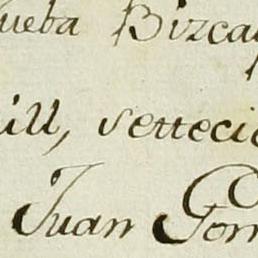 ueba Bizca
ill, settecie
Juan Gom